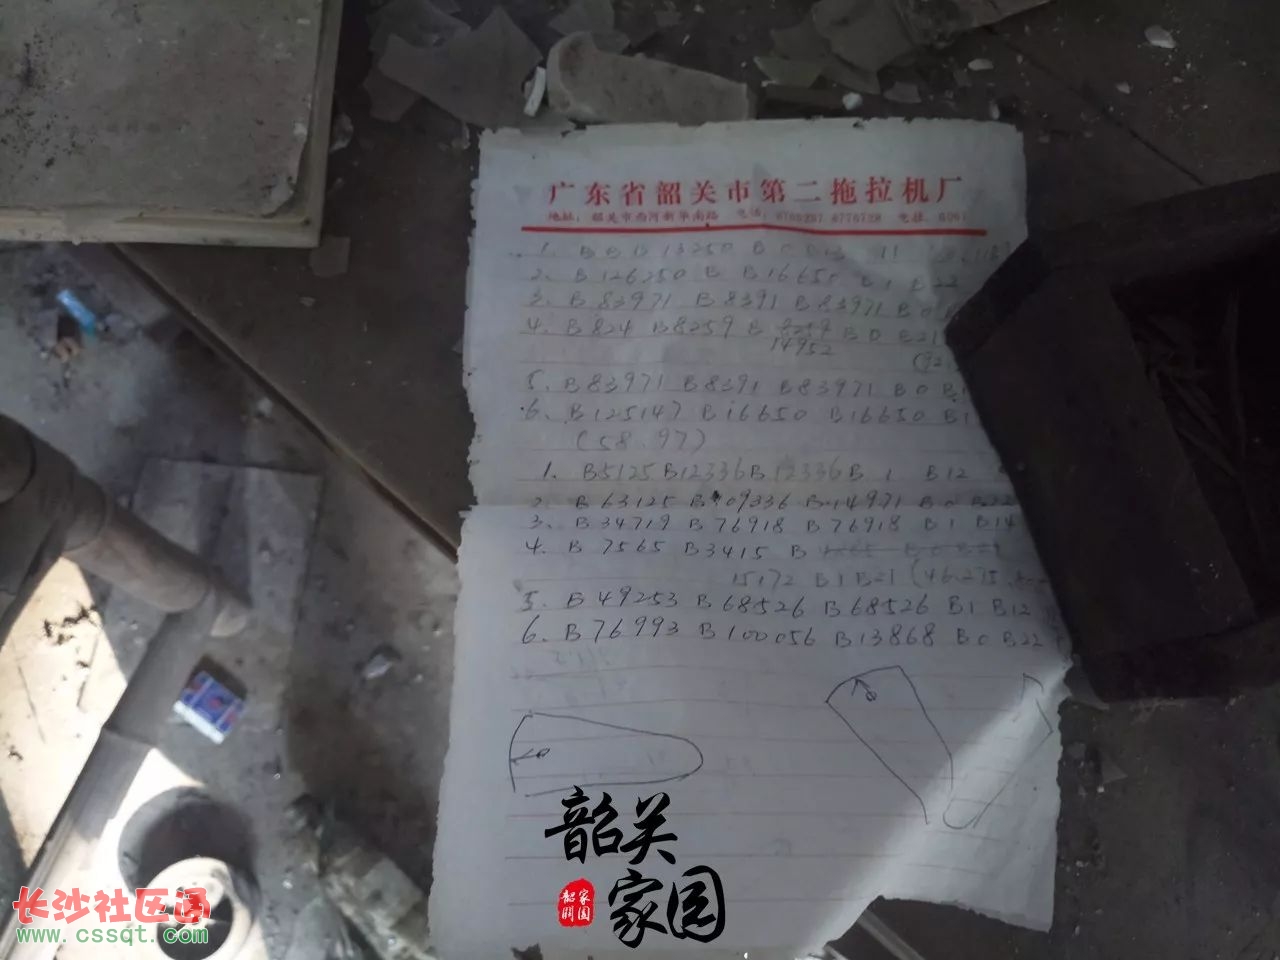 广东省韶关市第二拖拉机厂
地址：韶关市西河新华南路 电话：8766287 8776728 电挂：6061
1. B B B 13250 B
2. B 126250 B B 16650 B 1 B 22
3. B 83971 B 8391 B 83971 B 0
4. B 824 B 8259 B 8259 B 0 B 21
14952
(92
5. B 83971 B 8391 B 83971 B 0 B 1
6. B 125147 B 16650 B 16650 B 1
(58.97)
1. B 5125 B 12336 B 12336 B 1 B 12
2. B 63125 B 109336 B 14971 B 0 B 22
3. B 34719 B 76918 B 76918 B 1 B 14
4. B 7565 B 3415 B
15172 B 1 B 21 (46.275
5. B 49253 B 68526 B 68526 B 1 B 12
6. B 76993 B 100056 B 13868 B 0 B 22
韶关
家园
长沙社区通
www.cssqt.com